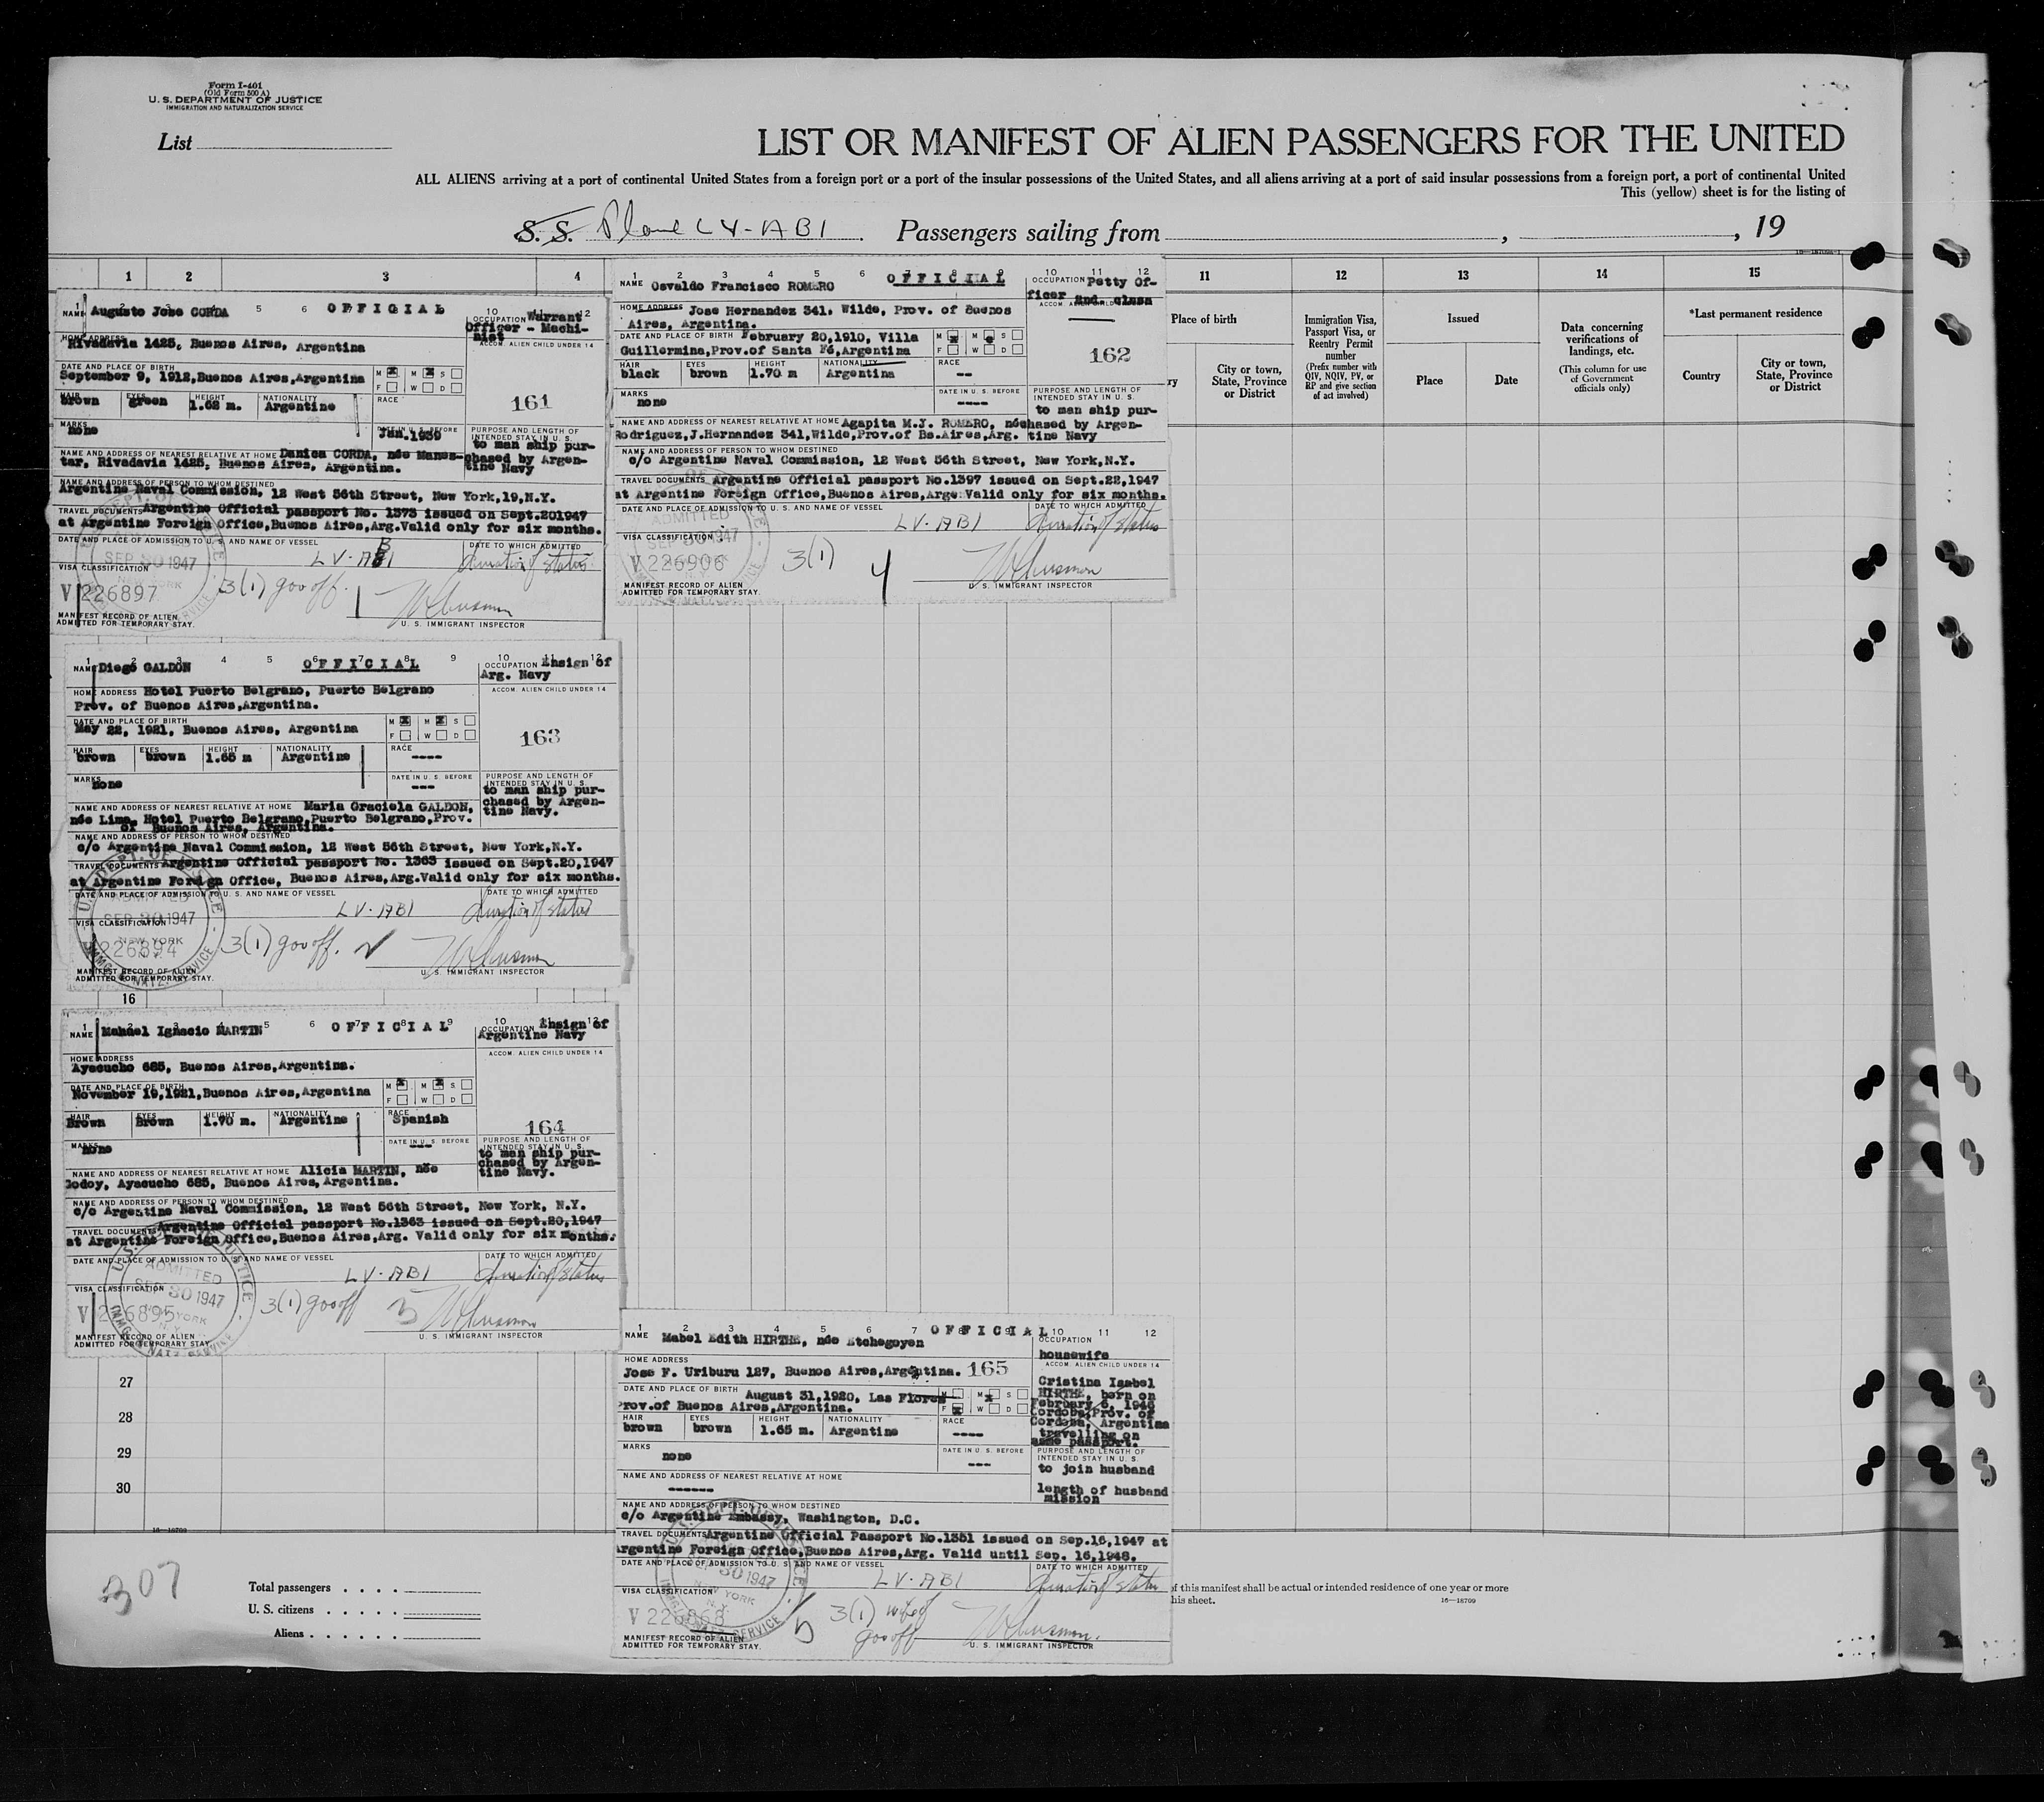 Form I-401
(Old Form 500 A)
U. S. DEPARTMENT OF JUSTICE
IMMIGRATION AND NATURALIZATION SERVICE
List
LIST OR MANIFEST OF ALIEN PASSENGERS FOR THE UNITED
ALL ALIENS arriving at a port of continental United States from a foreign port or a port of the insular possessions of the United States, and all aliens arriving at a port of said insular possessions from a foreign port, a port of continental United
This (yellow) sheet is for the listing of
S. S. Plane LV-ABI Passengers sailing from , , 19
1 2 3 4
11 12 13 14 15
Place of birth
City or town,
State, Province
or District
Immigration Visa,
Passport Visa, or
Reentry Permit
number
(Prefix number with
QIV, NQIV, PV, or
RP and give section
of act involved)
Issued
Place
Date
Data concerning
verifications of
landings, etc.
(This column for use
of Government
officials only)
*Last permanent residence
Country
City or town,
State, Province
or District
1 2 3 4 5 6 7 8 9 10 11 12
NAME Augusto Jose CORDA OFFICIAL
OCCUPATION Warrant
Officer - Machi-
nist
HOME ADDRESS
Rivadavia 1425, Buenos Aires, Argentina
ACCOM. ALIEN CHILD UNDER 14
DATE AND PLACE OF BIRTH
September 9, 1912, Buenos Aires, Argentina
M M S
F W D
HAIR EYES HEIGHT NATIONALITY RACE
brown green 1.62 m. Argentine
161
MARKS
none
DATE IN U. S. BEFORE
Jan. 1939
PURPOSE AND LENGTH OF
INTENDED STAY IN U. S.
to man ship pur-
chased by Argen-
tine Navy
NAME AND ADDRESS OF NEAREST RELATIVE AT HOME Danica CORDA, née Manes-
tar, Rivadavia 1425, Buenos Aires, Argentina.
NAME AND ADDRESS OF PERSON TO WHOM DESTINED
Argentine Naval Commission, 12 West 56th Street, New York, 19, N.Y.
TRAVEL DOCUMENTS Argentine Official passport No. 1373 issued on Sept.201947
at Argentine Foreign Office, Buenos Aires, Arg. Valid only for six months.
DATE AND PLACE OF ADMISSION TO U. S. AND NAME OF VESSEL
LV-ABI
DATE TO WHICH ADMITTED
duration of status
SEP 30 1947
NEW YORK
VISA CLASSIFICATION
V 226897
3(1) gov off. 1
MANIFEST RECORD OF ALIEN
ADMITTED FOR TEMPORARY STAY.
U. S. IMMIGRANT INSPECTOR
1 2 3 4 5 6 7 8 9 10 11 12
NAME Osvaldo Francisco ROMERO OFFICIAL
OCCUPATION Petty Of-
ficer 2nd. class
HOME ADDRESS Jose Hernandez 341, Wilde, Prov. of Buenos
Aires, Argentina.
DATE AND PLACE OF BIRTH February 20, 1910, Villa
Guillermina, Prov. of Santa Fé, Argentina
M M S
F W D
162
HAIR EYES HEIGHT NATIONALITY RACE
black brown 1.70 m Argentina --
MARKS
none
DATE IN U. S. BEFORE
----
PURPOSE AND LENGTH OF
INTENDED STAY IN U. S.
to man ship pur-
chased by Argen-
tine Navy
NAME AND ADDRESS OF NEAREST RELATIVE AT HOME Agapita M.Y. ROMERO, née
Rodriguez, J.Hernandez 341, Wilde, Prov. of Bs.Aires, Arg.
NAME AND ADDRESS OF PERSON TO WHOM DESTINED
c/o Argentine Naval Commission, 12 West 56th Street, New York, N.Y.
TRAVEL DOCUMENTS Argentine Official passport No.1397 issued on Sept.22,1947
at Argentine Foreign Office, Buenos Aires, Arge. Valid only for six months.
DATE AND PLACE OF ADMISSION TO U. S. AND NAME OF VESSEL
LV-ABI
DATE TO WHICH ADMITTED
duration of status
ADMITTED
SEP 30 1947
VISA CLASSIFICATION
V 226906
3(1) 4
MANIFEST RECORD OF ALIEN
ADMITTED FOR TEMPORARY STAY.
U. S. IMMIGRANT INSPECTOR
1 2 3 4 5 6 7 8 9 10 11 12
NAME Diego GALDON OFFICIAL
OCCUPATION Ensign of
Arg. Navy
HOME ADDRESS Hotel Puerto Belgrano, Puerto Belgrano
Prov. of Buenos Aires, Argentina.
ACCOM. ALIEN CHILD UNDER 14
DATE AND PLACE OF BIRTH
May 22, 1921, Buenos Aires, Argentina
M M S
F W D
163
HAIR EYES HEIGHT NATIONALITY RACE
brown brown 1.65 m Argentine ----
MARKS
none
DATE IN U. S. BEFORE
---
PURPOSE AND LENGTH OF
INTENDED STAY IN U. S.
to man ship pur-
chased by Argen-
tine Navy.
NAME AND ADDRESS OF NEAREST RELATIVE AT HOME Maria Graciela GALDON,
née Lima, Hotel Puerto Belgrano, Puerto Belgrano, Prov.
of Buenos Aires, Argentina.
NAME AND ADDRESS OF PERSON TO WHOM DESTINED
c/o Argentine Naval Commission, 12 West 56th Street, New York, N.Y.
TRAVEL DOCUMENTS Argentine Official passport No. 1363 issued on Sept.20,1947
at Argentine Foreign Office, Buenos Aires, Arg. Valid only for six months.
DATE AND PLACE OF ADMISSION TO U. S. AND NAME OF VESSEL
LV-ABI
DATE TO WHICH ADMITTED
duration of status
ADMITTED
SEP 30 1947
NEW YORK
VISA CLASSIFICATION
V 226894
3(1) gov off.
MANIFEST RECORD OF ALIEN
ADMITTED FOR TEMPORARY STAY.
U. S. IMMIGRANT INSPECTOR
16
1 2 3 4 5 6 7 8 9 10 12
NAME Manuel Ignacio MARTIN OFFICIAL
OCCUPATION Ensign of
Argentine Navy
HOME ADDRESS
Ayacucho 685, Buenos Aires, Argentina.
ACCOM. ALIEN CHILD UNDER 14
DATE AND PLACE OF BIRTH
November 19, 1921, Buenos Aires, Argentina
M M S
F W D
HAIR EYES HEIGHT NATIONALITY RACE
Brown Brown 1.70 m. Argentine Spanish
164
MARKS
none
DATE IN U. S. BEFORE
---
PURPOSE AND LENGTH OF
INTENDED STAY IN U. S.
to man ship pur-
chased by Argen-
tine Navy.
NAME AND ADDRESS OF NEAREST RELATIVE AT HOME Alicia MARTIN, née
Godoy, Ayacucho 685, Buenos Aires, Argentina.
NAME AND ADDRESS OF PERSON TO WHOM DESTINED
c/o Argentine Naval Commission, 12 West 56th Street, New York, N.Y.
TRAVEL DOCUMENTS Argentine Official passport No.1363 issued on Sept.20,1947
at Argentine Foreign Office, Buenos Aires, Arg. Valid only for six months.
DATE AND PLACE OF ADMISSION TO U. S. AND NAME OF VESSEL
LV-ABI
DATE TO WHICH ADMITTED
duration of status
ADMITTED
SEP 30 1947
NEW YORK
VISA CLASSIFICATION
V 226895
3(1) gov off 3
MANIFEST RECORD OF ALIEN
ADMITTED FOR TEMPORARY STAY.
U. S. IMMIGRANT INSPECTOR
27
28
29
30
16-18709
1 2 3 4 5 6 7 8 9 10 11 12
NAME Mabel Edith HIRTHE, née Etchegoyen OFFICIAL
OCCUPATION
housewife
HOME ADDRESS
Jose F. Uriburu 127, Buenos Aires, Argentina. 165
ACCOM. ALIEN CHILD UNDER 14
Cristina Isabel
HIRTHE, born on
February 6, 1946
Cordoba, Prov. of
Cordoba, Argentina
travelling on
same passport.
DATE AND PLACE OF BIRTH August 31, 1920, Las Flores
Prov. of Buenos Aires, Argentina.
M M S
F W D
HAIR EYES HEIGHT NATIONALITY RACE
brown brown 1.65 m. Argentine ----
MARKS
none
DATE IN U. S. BEFORE
---
PURPOSE AND LENGTH OF
INTENDED STAY IN U. S.
to join husband
length of husband
mission
NAME AND ADDRESS OF NEAREST RELATIVE AT HOME
------
NAME AND ADDRESS OF PERSON TO WHOM DESTINED
c/o Argentine Embassy, Washington, D.C.
TRAVEL DOCUMENTS Argentine Official Passport No.1351 issued on Sep.16,1947 at
Argentine Foreign Office, Buenos Aires, Arg. Valid until Sep. 16,1948.
DATE AND PLACE OF ADMISSION TO U. S. AND NAME OF VESSEL
LV-ABI
DATE TO WHICH ADMITTED
duration of status
30 1947
NEW YORK
N. Y.
VISA CLASSIFICATION
V 226868
5 3(1) wife of
gov off
MANIFEST RECORD OF ALIEN
ADMITTED FOR TEMPORARY STAY.
U. S. IMMIGRANT INSPECTOR
307
Total passengers
U. S. citizens
Aliens
of this manifest shall be actual or intended residence of one year or more
his sheet.
16-18709